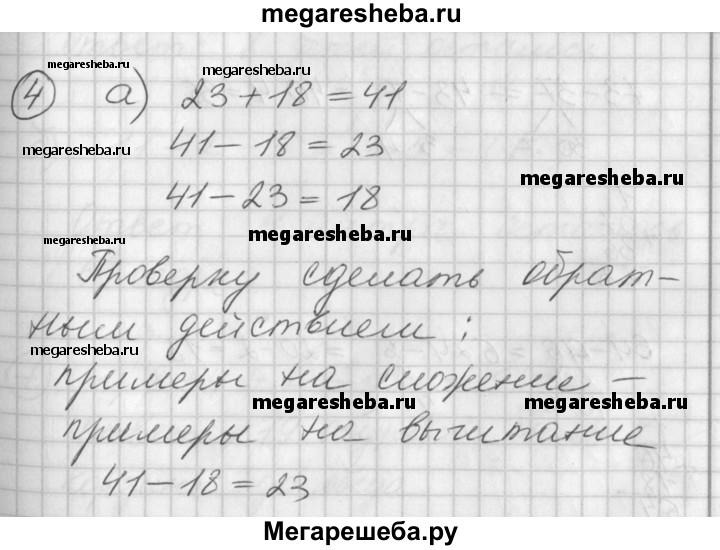 megaresheba.ru
megaresheba.ru
megaresheba.ru
④ а) 23 + 18 = 41
megaresheba.ru
41 - 18 = 23
megaresheba.ru
41 - 23 = 18
megaresheba.ru
megaresheba.ru
Проверку сделать обрат-
ным действием:
megaresheba.ru
примеры на сложение -
megaresheba.ru
megaresheba.ru
примеры на вычитание
41 - 18 = 23
Мегарешеба.ру